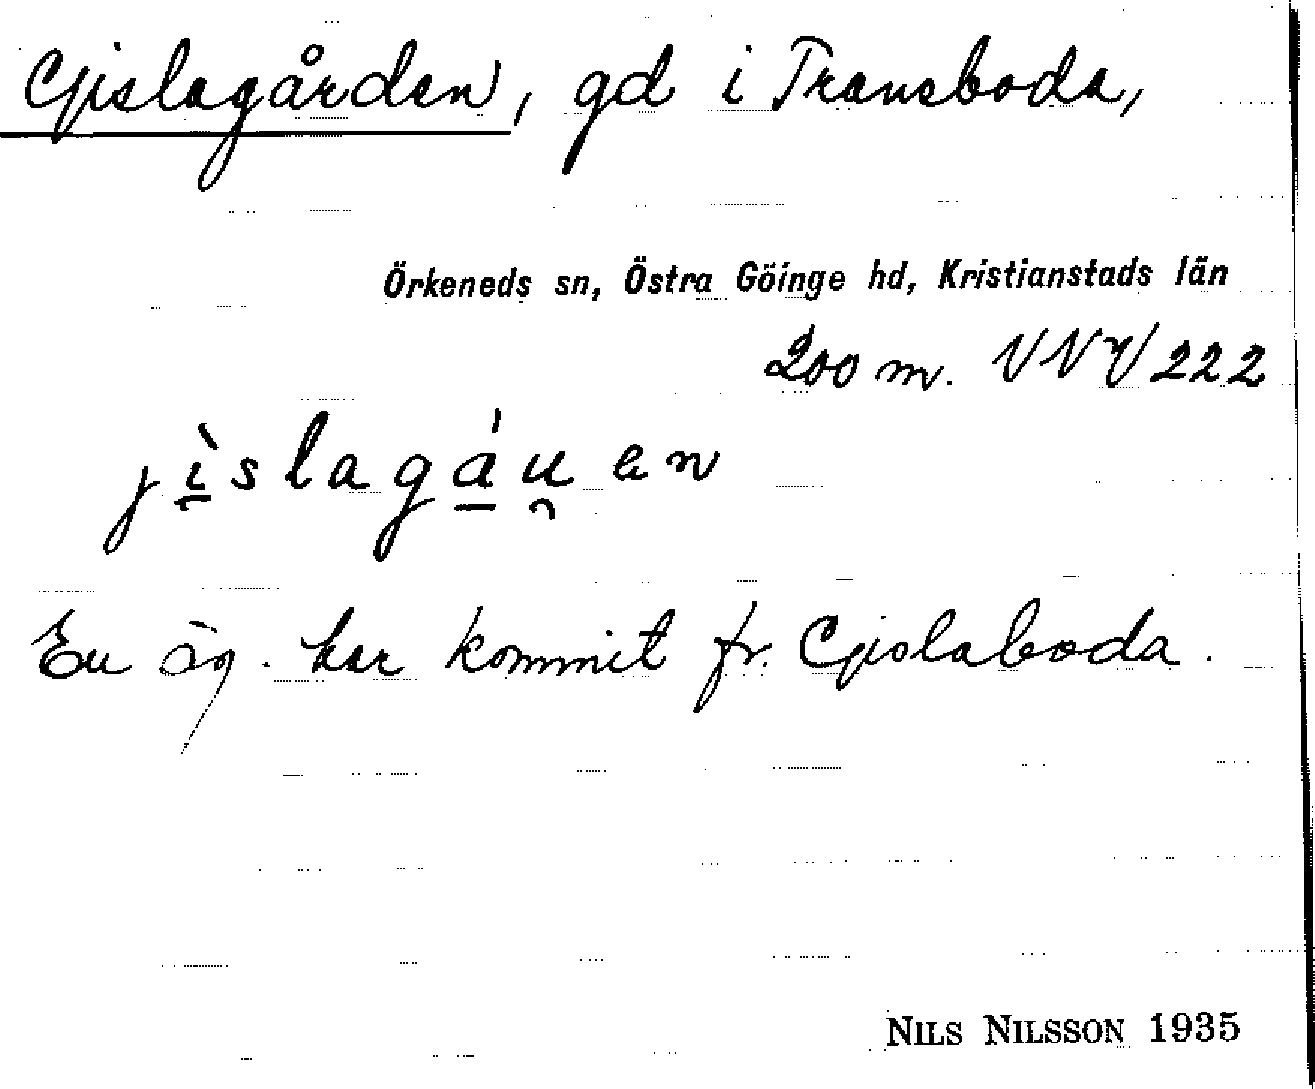 Gislagården, gd i Transboda,
Örkeneds sn, Östra Göinge hd, Kristianstads län
200 m. VNV/222
jìslagáu̯en
En äg. har kommit fr. Gislaboda.
NILS NILSSON 1935